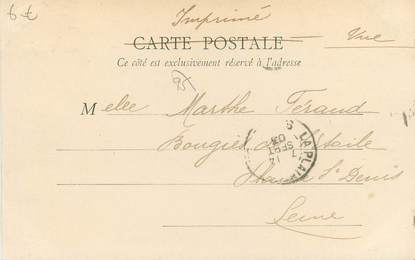 6 €
Imprimé
CARTE POSTALE Vue
Ce côté est exclusivement réservé à l'adresse
95
Melle Marthe Féraud
Bougies de l'Etoile
Plaine St Denis
Seine
LA PLAI
14
SEPT
03